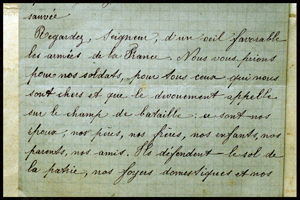 sauvée
Regardez, Seigneur, d'un œil favorable
les armées de la France. Nous vous prions
pour nos soldats, pour tous ceux qui nous
sont chers et que le dévouement appelle
sur le champ de bataille : ce sont nos
époux, nos pères, nos frères, nos enfants, nos
parents, nos amis. Ils défendent le sol de
la patrie, nos foyers domestiques et nos